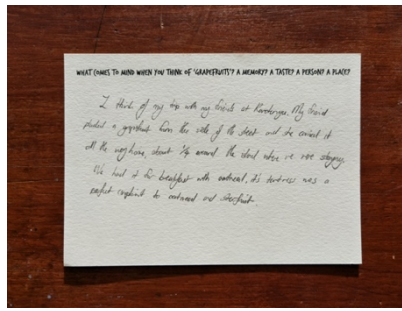 WHAT COMES TO MIND WHEN YOU THINK OF 'GRAPEFRUITS'? A MEMORY? A TASTE? A PERSON? A PLACE?
I think of my trip with my friends at . My friend
picked a grapefruit from the side of the street and she carried it
all the way home, around the island where we were staying.
We had it for breakfast with oatmeal, it's tartness was a
perfect compliment to oatmeal and starfruit.